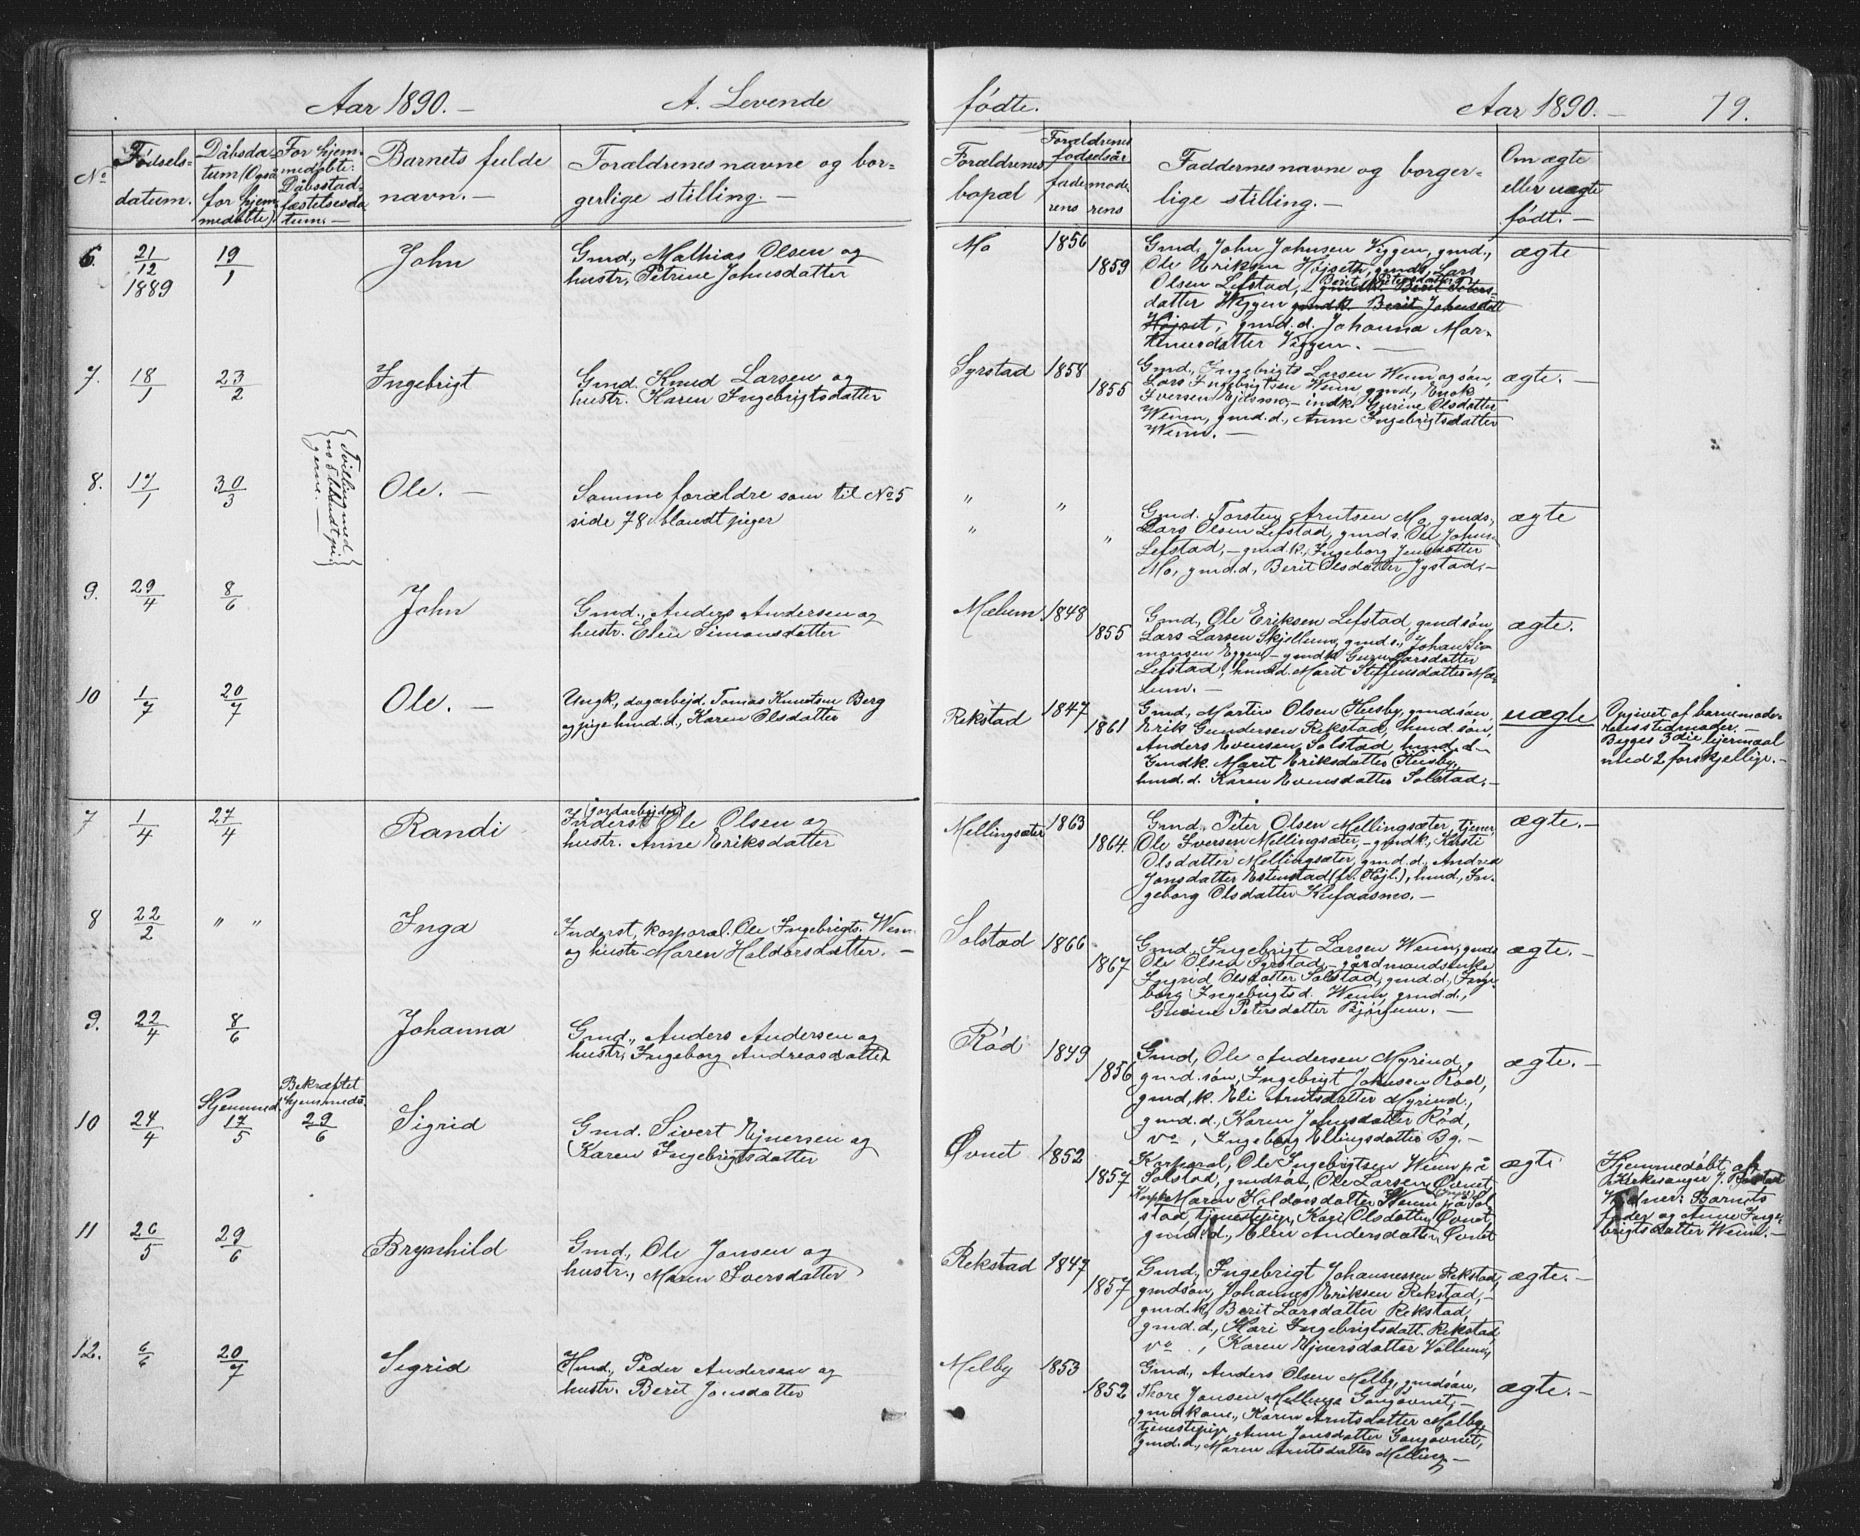 Aar 1890. — A. Levende
fødte. Aar 1890. — 79.
No
Fødsels-
datum.
Dåbsda-
tum (Også
for hjem-
medøbte)
For hjem-
medøbte:
Dåbsstad-
fæstelsesda-
tum. —
Barnets fulde
navn. —
Forældrenes navne og bor-
gerlige stilling. —
Forældrenes
bopæl
Forældrenes
fødselsår
fade-
rens
mode-
rens
Faddernes navne og borger-
lige stilling. —
Om ægte
eller uægte
født. —
6. 21/12 1889 19/1 John
Gmd., Mathias Olsen og
hustr., Petrine Johnsdatter
Mo 1856 1859
Gmd. John Johnsen Viggen, gmd.,
Ole Eriksen Højseth, gmds. Lars
Olsen Lefstad, Berit Petersdatter
datter Wiggen gmdk. Berit Johnsdatt
Højset, gmd.d. Johanna Mor-
tenusdatter Viggen. —
ægte
7. 18/1 23/2 Ingebrigt
Gmd. Knud Larsen og
hustr. Karen Ingebrigtsdatter
Syrstad 1858 1855
Gmd., Ingebrigts Larsen Wenn og søn,
Lars Ingebrigtsen Wenn, gmd., Enok
Iversen Ejlsmo, — indk. Gurine Olsdatter
Wenn, gmd.d., Anne Ingebrigtsdatter
Wenn. —
ægte. —
8. 17/1 30/3
Tvilling med
no 5 blandt pi-
gerne. —
Ole. —
Samme forældre som til No 5
side 78 blandt piger
" "
" "
Gmd. Torsten Arntsen Mo, gmds.,
Lars Olsen Lefstad, gmds. Ole Johns.
Lefstad, — gmd.k., Ingeborg Jensdatter
Mo, gmd.d., Berit Olsdatter Jystad. —
ægte
9. 29/4 8/6 John
Gmd., Anders Andersen og
hustr. Elen Simonsdatter
Mælum 1848 1855
Gmd., Ole Eriksen Lefstad, gmdsøn,
Lars Larsen Skjellum, gmds., Johan Si-
monsen Eggen, — gmdk. Guru Larsdatter
Lefstad, hmd.d. Marit Steffensdatter Mæ-
lum. —
ægte.
10 1/7 20/7 Ole. —
Ungk., dagarbejd. Tomas Knutsen Berg
og pige hmd.d., Karen Olsdatter
Rekstad 1847 1861
Gmd., Martin Olsen Husby, gmdsøn,
Erik Gundersen Rekstad, hmd.søn,
Anders Evensen Solstad, hmd.d. —
Gmdk. Marit Eriksdatter Husby,
hmd.d. Karen Evensdatter Solstad. —
uægte
Opgivet af barnemoder
Begges 3die lejermaal
med 2 forskjellige. —
7 1/4 27/4 Randi
(jordarbejder)
Inderst Ole Olsen og
hustr. Anne Eriksdatter
Mellingsæter 1863 1864
Gmd., Peter Olsen Mellingsæter, tjener,
Ole Iversen Mellingsæter, — gmdk., Kirsti
Olsdatter Mellingsæter, gmd.d., Andrea
Jonsdatter Estenstad (fr. Højl.), hmd., In-
geborg Olsdatter Klefaasmo. —
ægte. —
8 22/2 " " Inga
Inderst, korporal. Ole Ingebrigts. Wenn
og hustr. Maren Haldorsdatter. —
Solstad 1866 1867
Gmd., Ingebrigt Larsen Wenn, gmds
Ole Olsen Syrstad, — gårdmandsenke
Ingrid Olsdatter Solstad, gmd.d., Inge-
borg Ingebrigtsd. Wenn, gmd.d.,
Gurine Petersdatter Bjørfunn. —
ægte. —
9. 22/4 8/6 Johanna
Gmd., Anders Andersen og
hustr., Ingeborg Andreasdatter
Rød 1849 1856
Gmd, Ole Andersen Myrind,
gmd.søn, Ingebrigt Johnsen Rød,
gmd.k. Eli Arntsdatter Myrind.,
gmd.d., Karen Johnsdatter Rød,
vo , Ingeborg Ellingsdatter Bg. —
ægte. —
10 24/4
Hjemmed.
17/5
Bekræftet
hjemmedå.
29/6
Sigrid
Gmd. Sivert Ejnersen og
Karen Ingebrigtsdatter
Øvnet 1852 1857
Korporal, Ole Ingebrigtsen Wenn på
Solstad, gmdsøn, Ole Larsen Øvnet,
Maren Haldorsdatter Wenn på Sol-
stad tjenestepige, Kari Olsdatter Øvnet,
gmd.d., Elen Andersdatter, Øvnet
ægte
Hjemmedøbt af
Kirkesanger J. Rostad
Vidner: Barnets
fader og Anne Inge-
brigtsdatter Wenn. —
11 26/5 29/6 Brynhild
Gmd., Ole Jonsen og
hustr., Maren Iversdatter
Rekstad 1847 1857
Gmd., Ingebrigt Johannessen Rekstad,
gmdsøn, Johannes Eriksen Rekstad, —
gmd.k. Berit Larsdatter Rekstad,
gmd.d., Kari Ingebrigtsdatt. Rekstad
vo ., Karen Ejnersdatter Vollum,
ægte. —
12. 6/6 20/7 Sigrid
Hmd., Peder Andersen og
hustr. Berit Jonsdatter
Melby 1853 1852
Gmd., Anders Olsen Melby, gmdsøn,
Thore Jonsen Mellinga Gangovnet, —
gmdkone., Karen Arntsdatter Melby,
tjenestepige, Anne Jonsdatter Gangovnet,
gmd.d., Maren Arntsdatter Melling. —
ægte. —